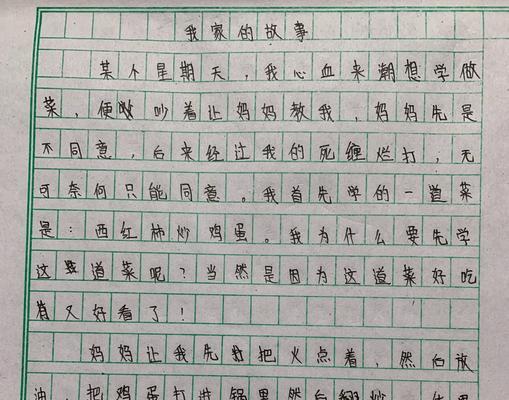 我家的故事
某个星期天,我心血来潮想学做
菜,便吵着让妈妈教我,妈妈先是
不同意,后来经过我的死缠烂打,无
可奈何只能同意。我首先学的一道菜
是:西红柿炒鸡蛋。我为什么要先学
这道菜呢?当然是因为这道菜好吃
又好看了!
妈妈让我先把火点着,然后放
油,把鸡蛋打进锅里然后翻炒,